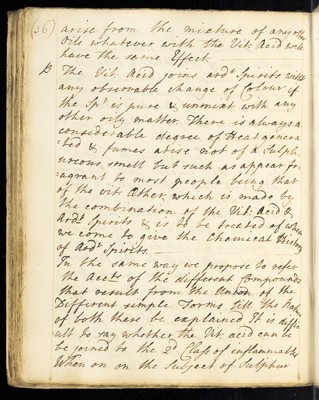 (36) arise from the mixture of any other
Oils whatever with the Vit: Acid will
have the same Effect.
The Vit: Acid joins ardt Spirits witht
any observable change of Colour if
the Spt is pure & unmixt with any
other oily matter. There is always a
considerable degree of Heat genera
-ted & fumes arise not of a Sulph
ureous smell but such as appear fra
-agrant to most people being that
of the vit: Æther, which is made by
the combination of the Vit: Acid &
Ardt Spirits & is to be treated of when
we come to give the Chemical History
of Ardt Spirits.
In the same way we propose to refer
the Acct of the different Compounds
that result from the Union of the
Different simple Forms till the Nature
of both these be explained It is diffi
-cult to say whether the Vit: acid can be
be joined to the 2d Class of inflammables
When on on the Subject of Sulphur